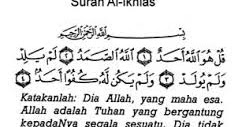 Surah Al-Ikhlas
بِسْمِ اللَّهِ الرَّحْمَٰنِ الرَّحِيمِ
قُلْ هُوَ اللَّهُ أَحَدٌ ١ اللَّهُ الصَّمَدُ ٢ لَمْ يَلِدْ
وَلَمْ يُولَدْ ٣ وَلَمْ يَكُن لَّهُ كُفُوًا أَحَدٌ ٤
Katakanlah: Dia Allah, yang maha esa.
Allah adalah Tuhan yang bergantung
kepadaNya segala sesuatu. Dia tidak